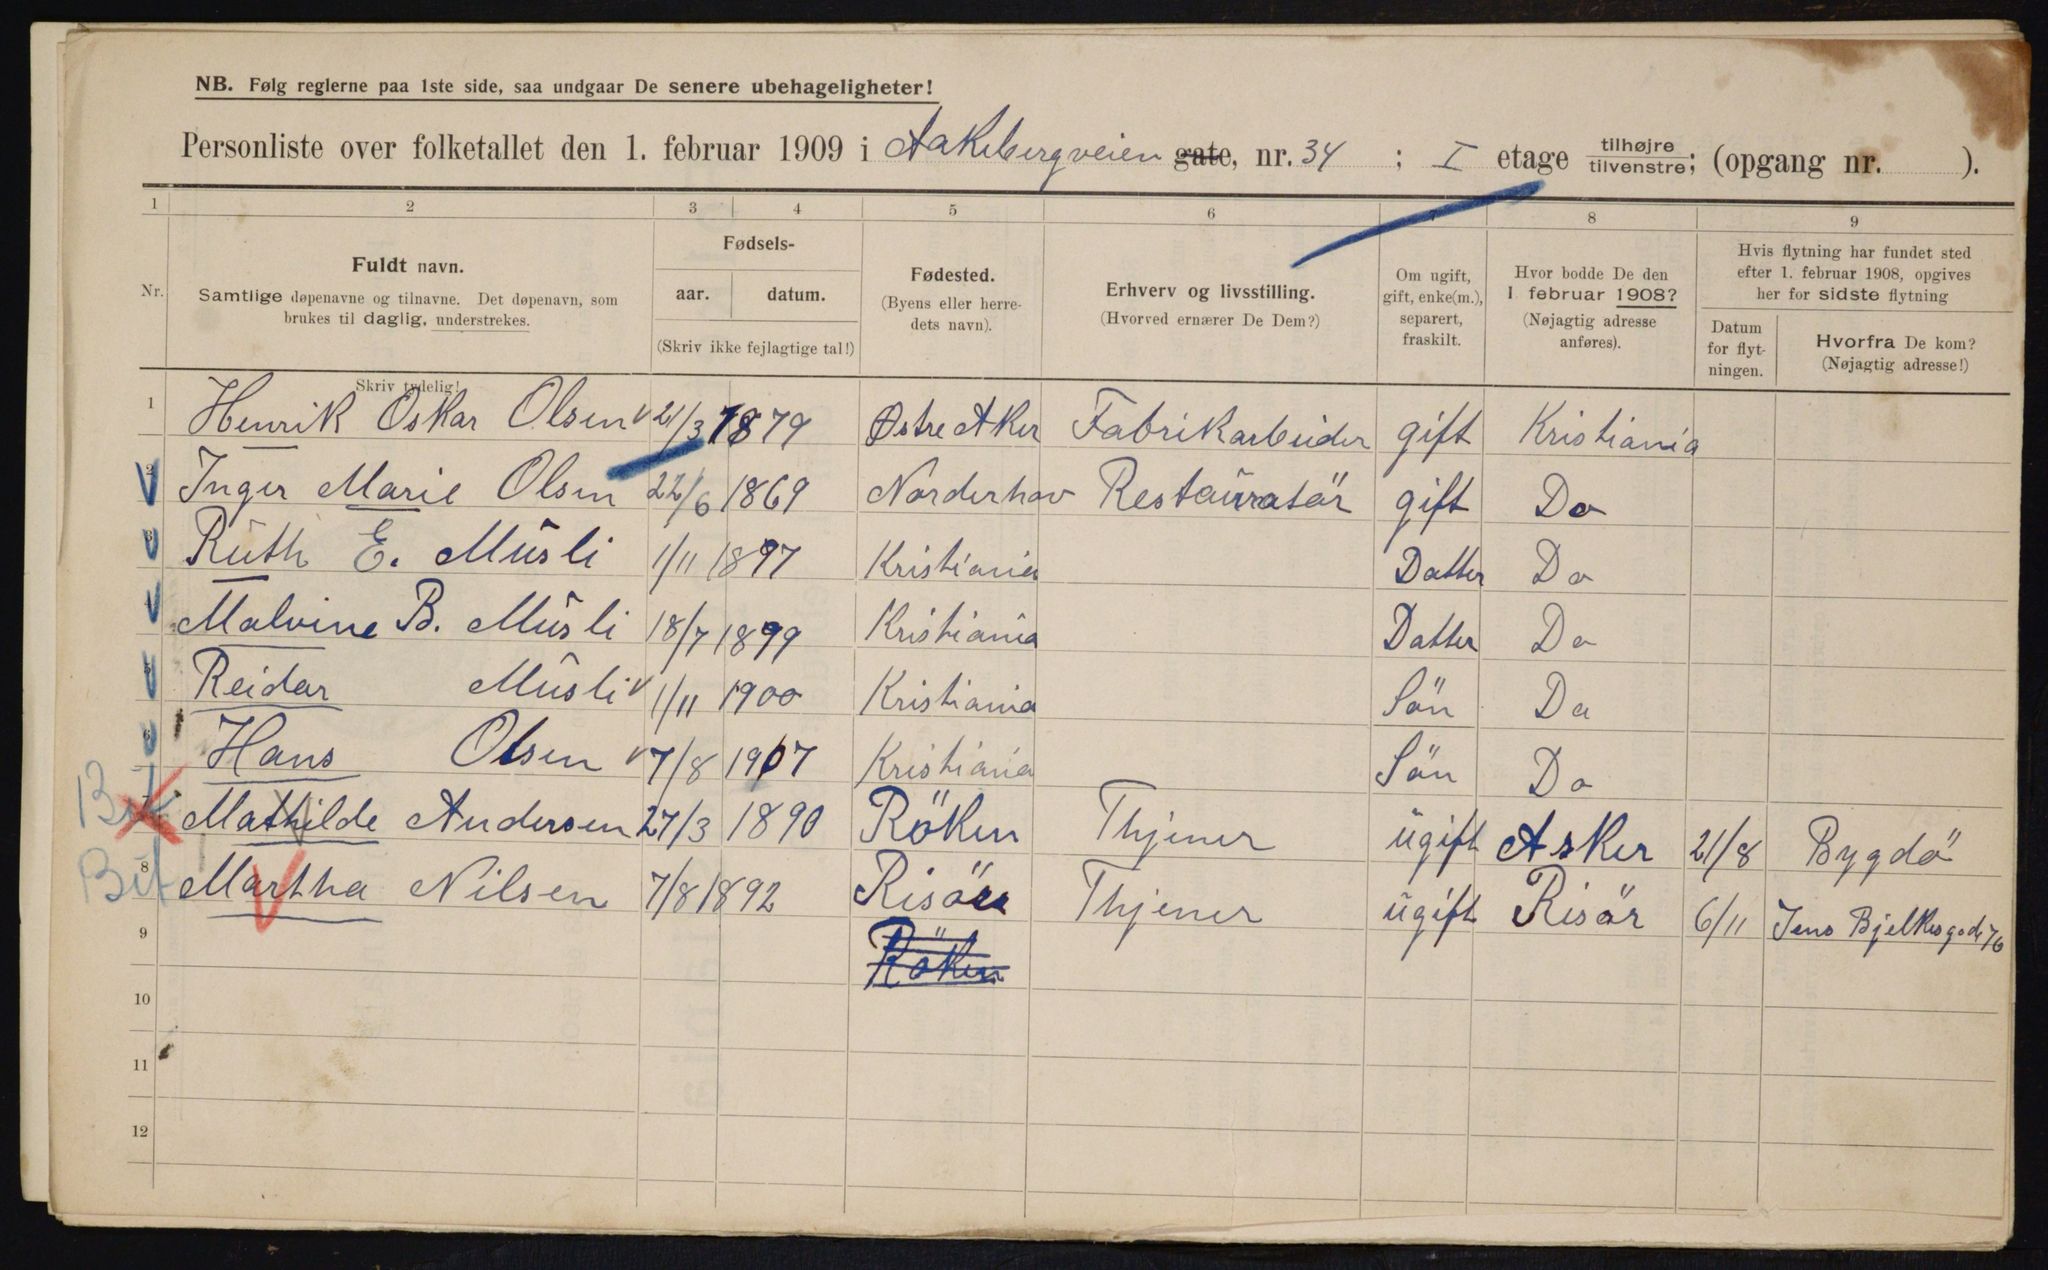 NB. Følg reglerne paa 1ste side, saa undgaar De senere ubehageligheter!
Personliste over folketallet den 1. februar 1909 i Aakebergveien gate, nr. 34 ; I etage tilhøjre tilvenstre; (opgang nr. ).
1 2 3 4 5 6 7 8 9
Nr. Fuldt navn. Samtlige døpenavne og tilnavne. Det døpenavn, som brukes til daglig, understrekes. Skriv tydelig!
Fødsels- aar. datum. (Skriv ikke fejlagtige tal!)
Fødested. (Byens eller herredets navn).
Erhverv og livsstilling. (Hvorved ernærer De Dem?)
Om ugift, gift, enke(m.), separert, fraskilt.
Hvor bodde De den 1 februar 1908? (Nøjagtig adresse anføres).
Hvis flytning har fundet sted efter 1. februar 1908, opgives her for sidste flytning
Datum for flytningen. Hvorfra De kom? (Nøjagtig adresse!)
1 Henrik Oskar Olsen 21/3 1879 Østre Aker Fabrikarbeider gift Kristiania
2 Inger Marie Olsen 22/6 1869 Norderhov Restauratör gift Do
3 Ruth E. Müsli 1/11 1897 Kristiania Datter Do
4 Malvine B. Müsli 18/7 1899 Kristiania Datter Do
5 Reidar Müsli 1/11 1900 Kristiania Sön Do
6 Hans Olsen 7/8 1907 Kristiania Sön Do
7 Mathilde Andersen 27/3 1890 Röken Thjener ugift Asker 21/8 Bygdö
8 Martha Nilsen 7/8 1892 Risör Thjener ugift Risör 6/11 Jens Bjelkesgade 76
9 Röken
10
11
12